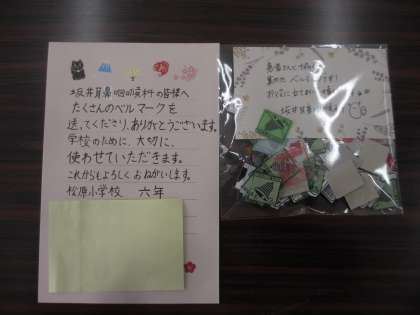 坂井耳鼻咽喉科の皆様へ
たくさんのベルマークを
送ってくださり、ありがとうございます。
学校のために、大切に、
使わせていただきます。
これからもよろしくおねがいします。
松原小学校 六年
患者さんと
集めた ベルマークです!
坂井耳鼻